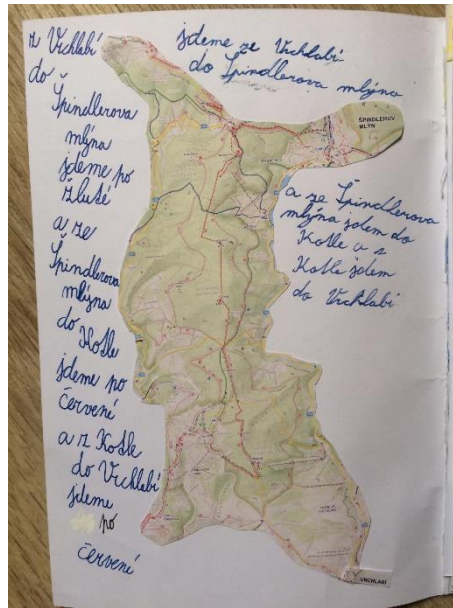 z Vrchlabí
do
Špindlerova
mlýna
jdeme po
žluté
a ze
Špindlerova
mlýna
do Kotle
jdeme po
červené
a z Kotle
do Vrchlabí
jdeme
po
červené
jdeme ze Vrchlabí
do Špindlerova mlýna
ŠPINDLERŮV
MLÝN
a ze Špindlerova
mlýna jdem do
Kotle a s
Kotle jdem
do Vrchlabí
VRCHLABÍ